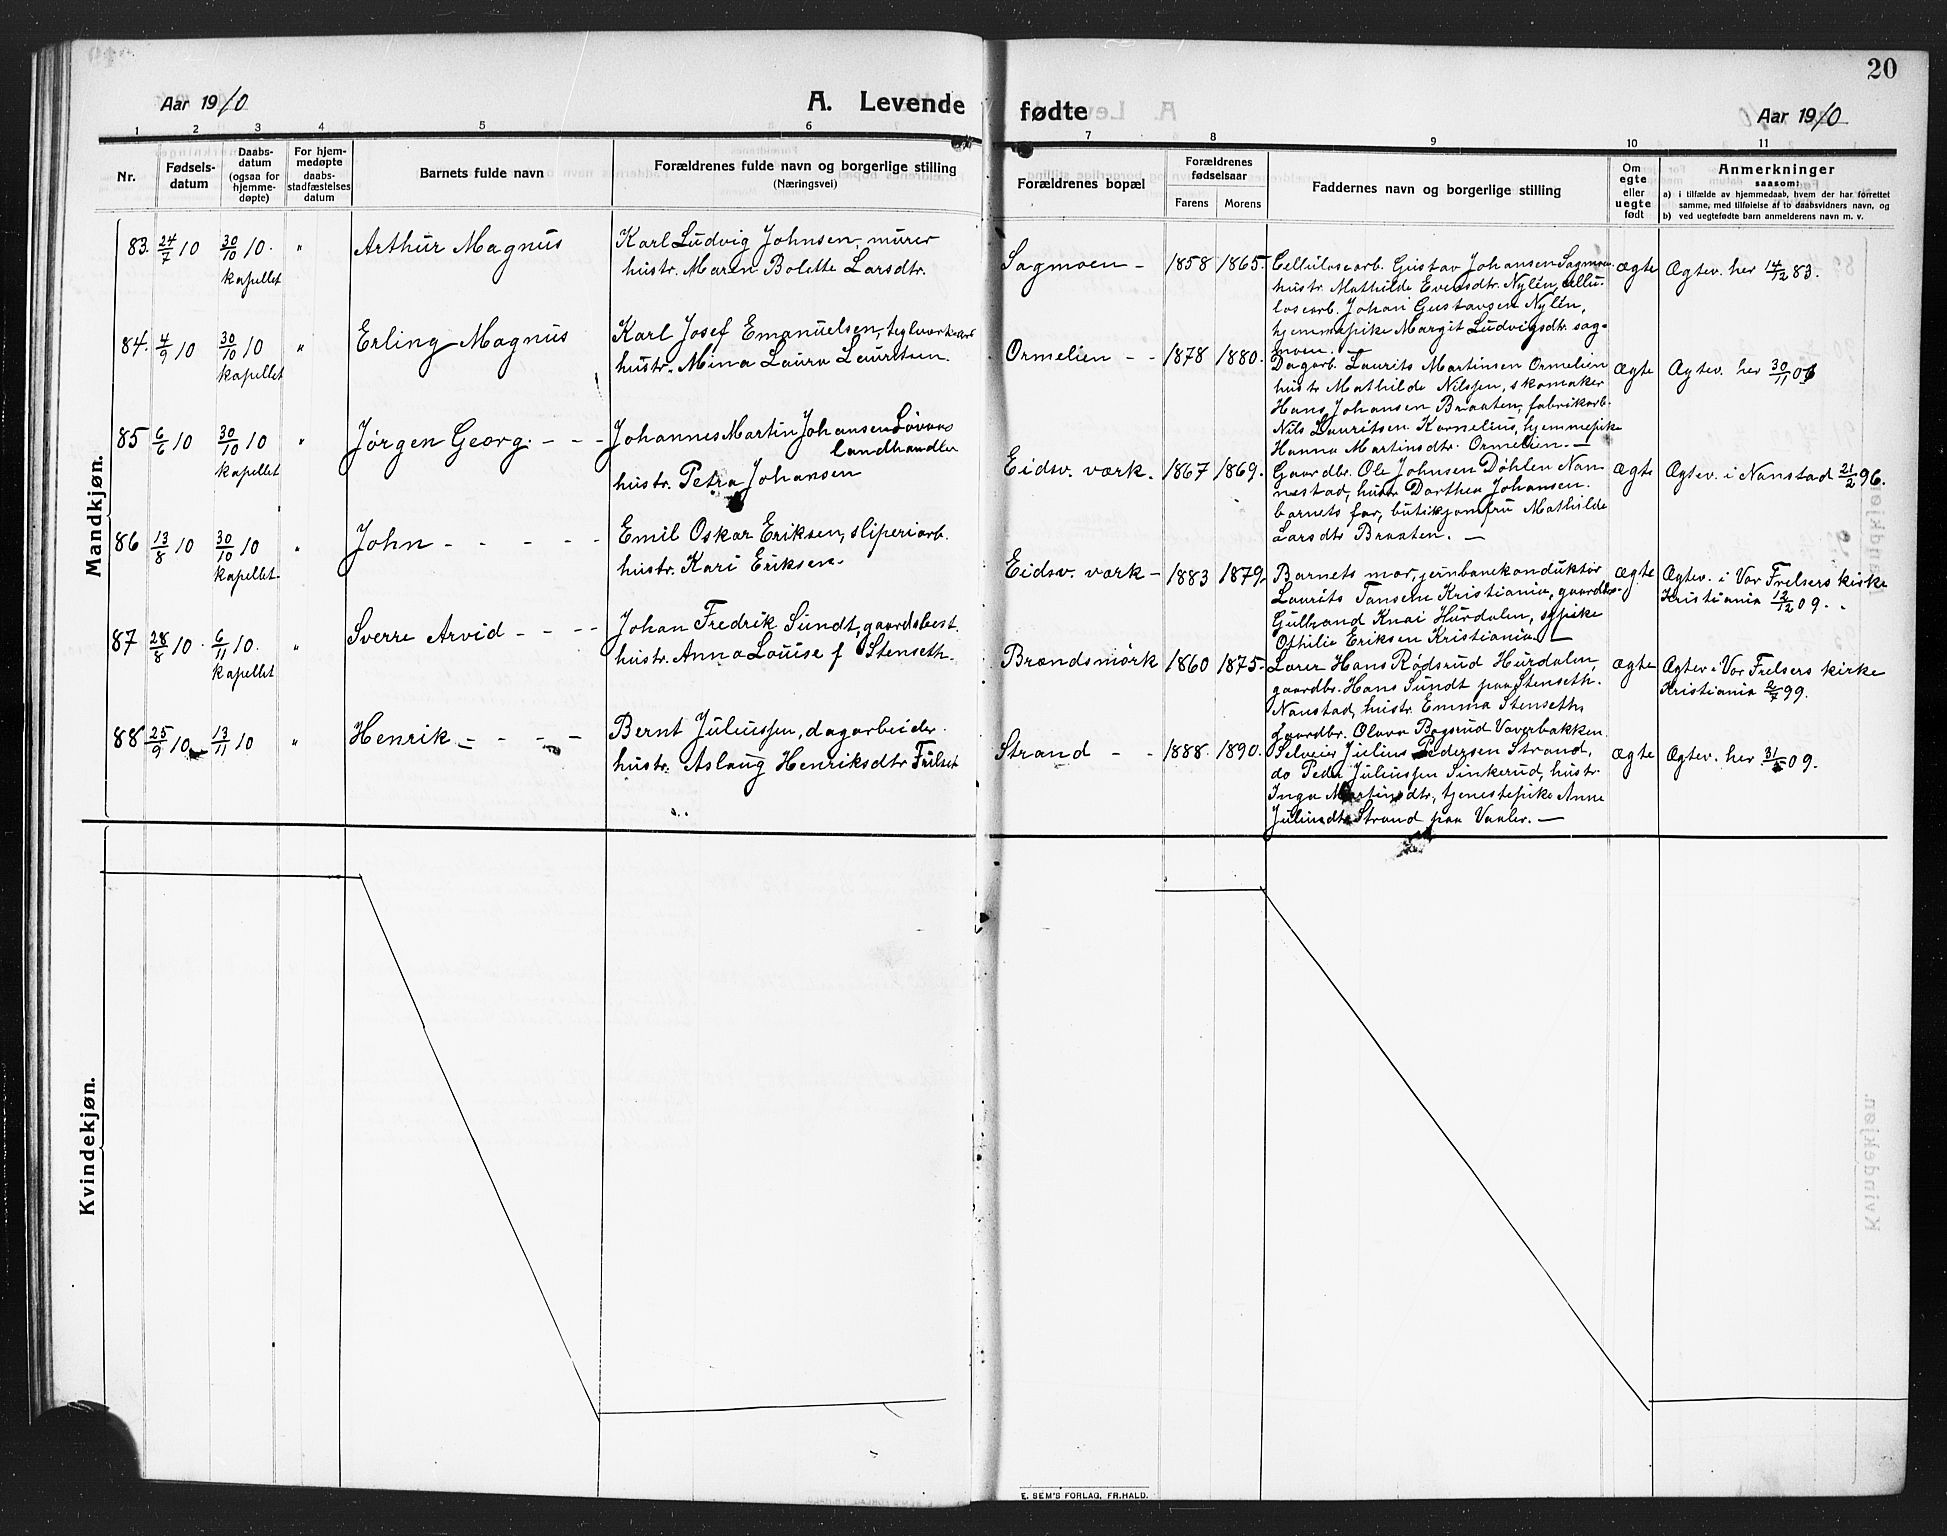 20
Aar 1910
A. Levende fødte
Aar 1910
1 2 3 4 5 6 7 8 9 10 11
Nr.
Fødsels-
datum
Daabs-
datum
(ogsaa for
hjemme-
døpte)
For hjem-
medøpte
daabs-
stadfæstelses
datum
Barnets fulde navn
Forældrenes fulde navn og borgerlige stilling
(Næringsvei)
Forældrenes bopæl
Forældrenes
fødselsaar
Farens Morens
Faddernes navn og borgerlige stilling
Om
egte
eller
uegte
født
Anmerkninger
saasom:
a) i tilfælde av hjemmedaab, hvem der har forrettet
samme, med tilføielse af to daabsvidners navn, og
b) ved uegtefødte barn anmelderens navn m. v.
Mandkjøn.
83. 24/7 10 30/10 10. " Arthur Magnus
kapellet
Karl Ludvig Johnsen, murer
hustr. Maren Bolette Larsdtr.
Sagmoen - 1858 1865.
Cellulosearb. Gustav Johansen Sagmoen
hustr. Mathilde Evensdtr. Nylén, cellu-
losearb. Johan Gustavsen Nylén,
hjemmepike Margit Ludvigsdtr. sag-
moen.
ægte Ægtev. her 14/12 83.
84. 4/9 10 30/10 10 " Erling Magnus
kapellet
Karl Josef Emanuelsen, teglverksarb
hustr. Mina Laura Lauritsen.
Ormelien - - 1878 1880.
Dagarb. Laurits Martinsen Ormelien
hustr Mathilde Nilssen, skomaker
Hans Johansen Braaten, fabrikarb.
Nils Lauritsen Kornelius, hjemmepike
Hanna Martinsdtr. Ormelien. —
ægte Ægtev. her 30/11 06
85 6/6 10 30/10 10 " Jørgen Georg. - - -
kapellet
Johannes Martin Johansen Løvaas
landhandler
hustr. Petra Johansen
Eidsv. værk. 1867 1869.
Gaardbr. Ole Johnsen Døhlen Nan-
nestad, hustr Dorthea Johansen.
barnets far, butikjomfru Mathilde
Larsdtr Braaten. —
ægte Ægtev. i Nanstad 21/2 96.
86 13/8 10 30/10 10 " John - - - - -
kapellet
Emil Oskar Eriksen, sliperiarb.
hustr. Kari Eriksen.
Eidsv. værk - 1883 1879.
Barnets mor, jernbanekonduktør
Laurits Jansen Kristiania, gaardbr.
Gulbrand Knai Hurdalen, sypike
Othilie Eriksen Kristiania. —
ægte Ægtev. i Vor Frelsers kirke
Kristiania 12/12 09.
87 28/8 10. 6/11 10. " Sverre Arvid - - - -
kapellet
Johan Fredrik Sundt, gaardsbest.
hustr. Anna Louise f Stenseth.
Brændsmørk 1860 1875.
Lærer Hans Rødsrud Hurdalen,
gaardbr. Hans Sundt paa Stenseth.
Nanstad, hustr. Emma Stenseth,
gaardbr. Olava Bøgsrud Vaverbakken.
ægte Ægtev i Vor Frelsers kirke
Kristiania 2/7 99.
88 25/9 10 13/11 10 " Henrik - - - - -
Bernt Juliussen, dagarbeider.
hustr. Aslaug Henriksdtr Frilset
Strand - - 1888. 1890.
Selveier Julius Pedersen Strand,
do Peder Juliussen Sinkerud, hustr.
Inga Martinsdtr, tjenestepike Anne
Juliusdtr Strand paa Vaaler. —
ægte Ægtev. her 09.
Kvindekjøn.
E. SEM'S FORLAG, FR.HALD.